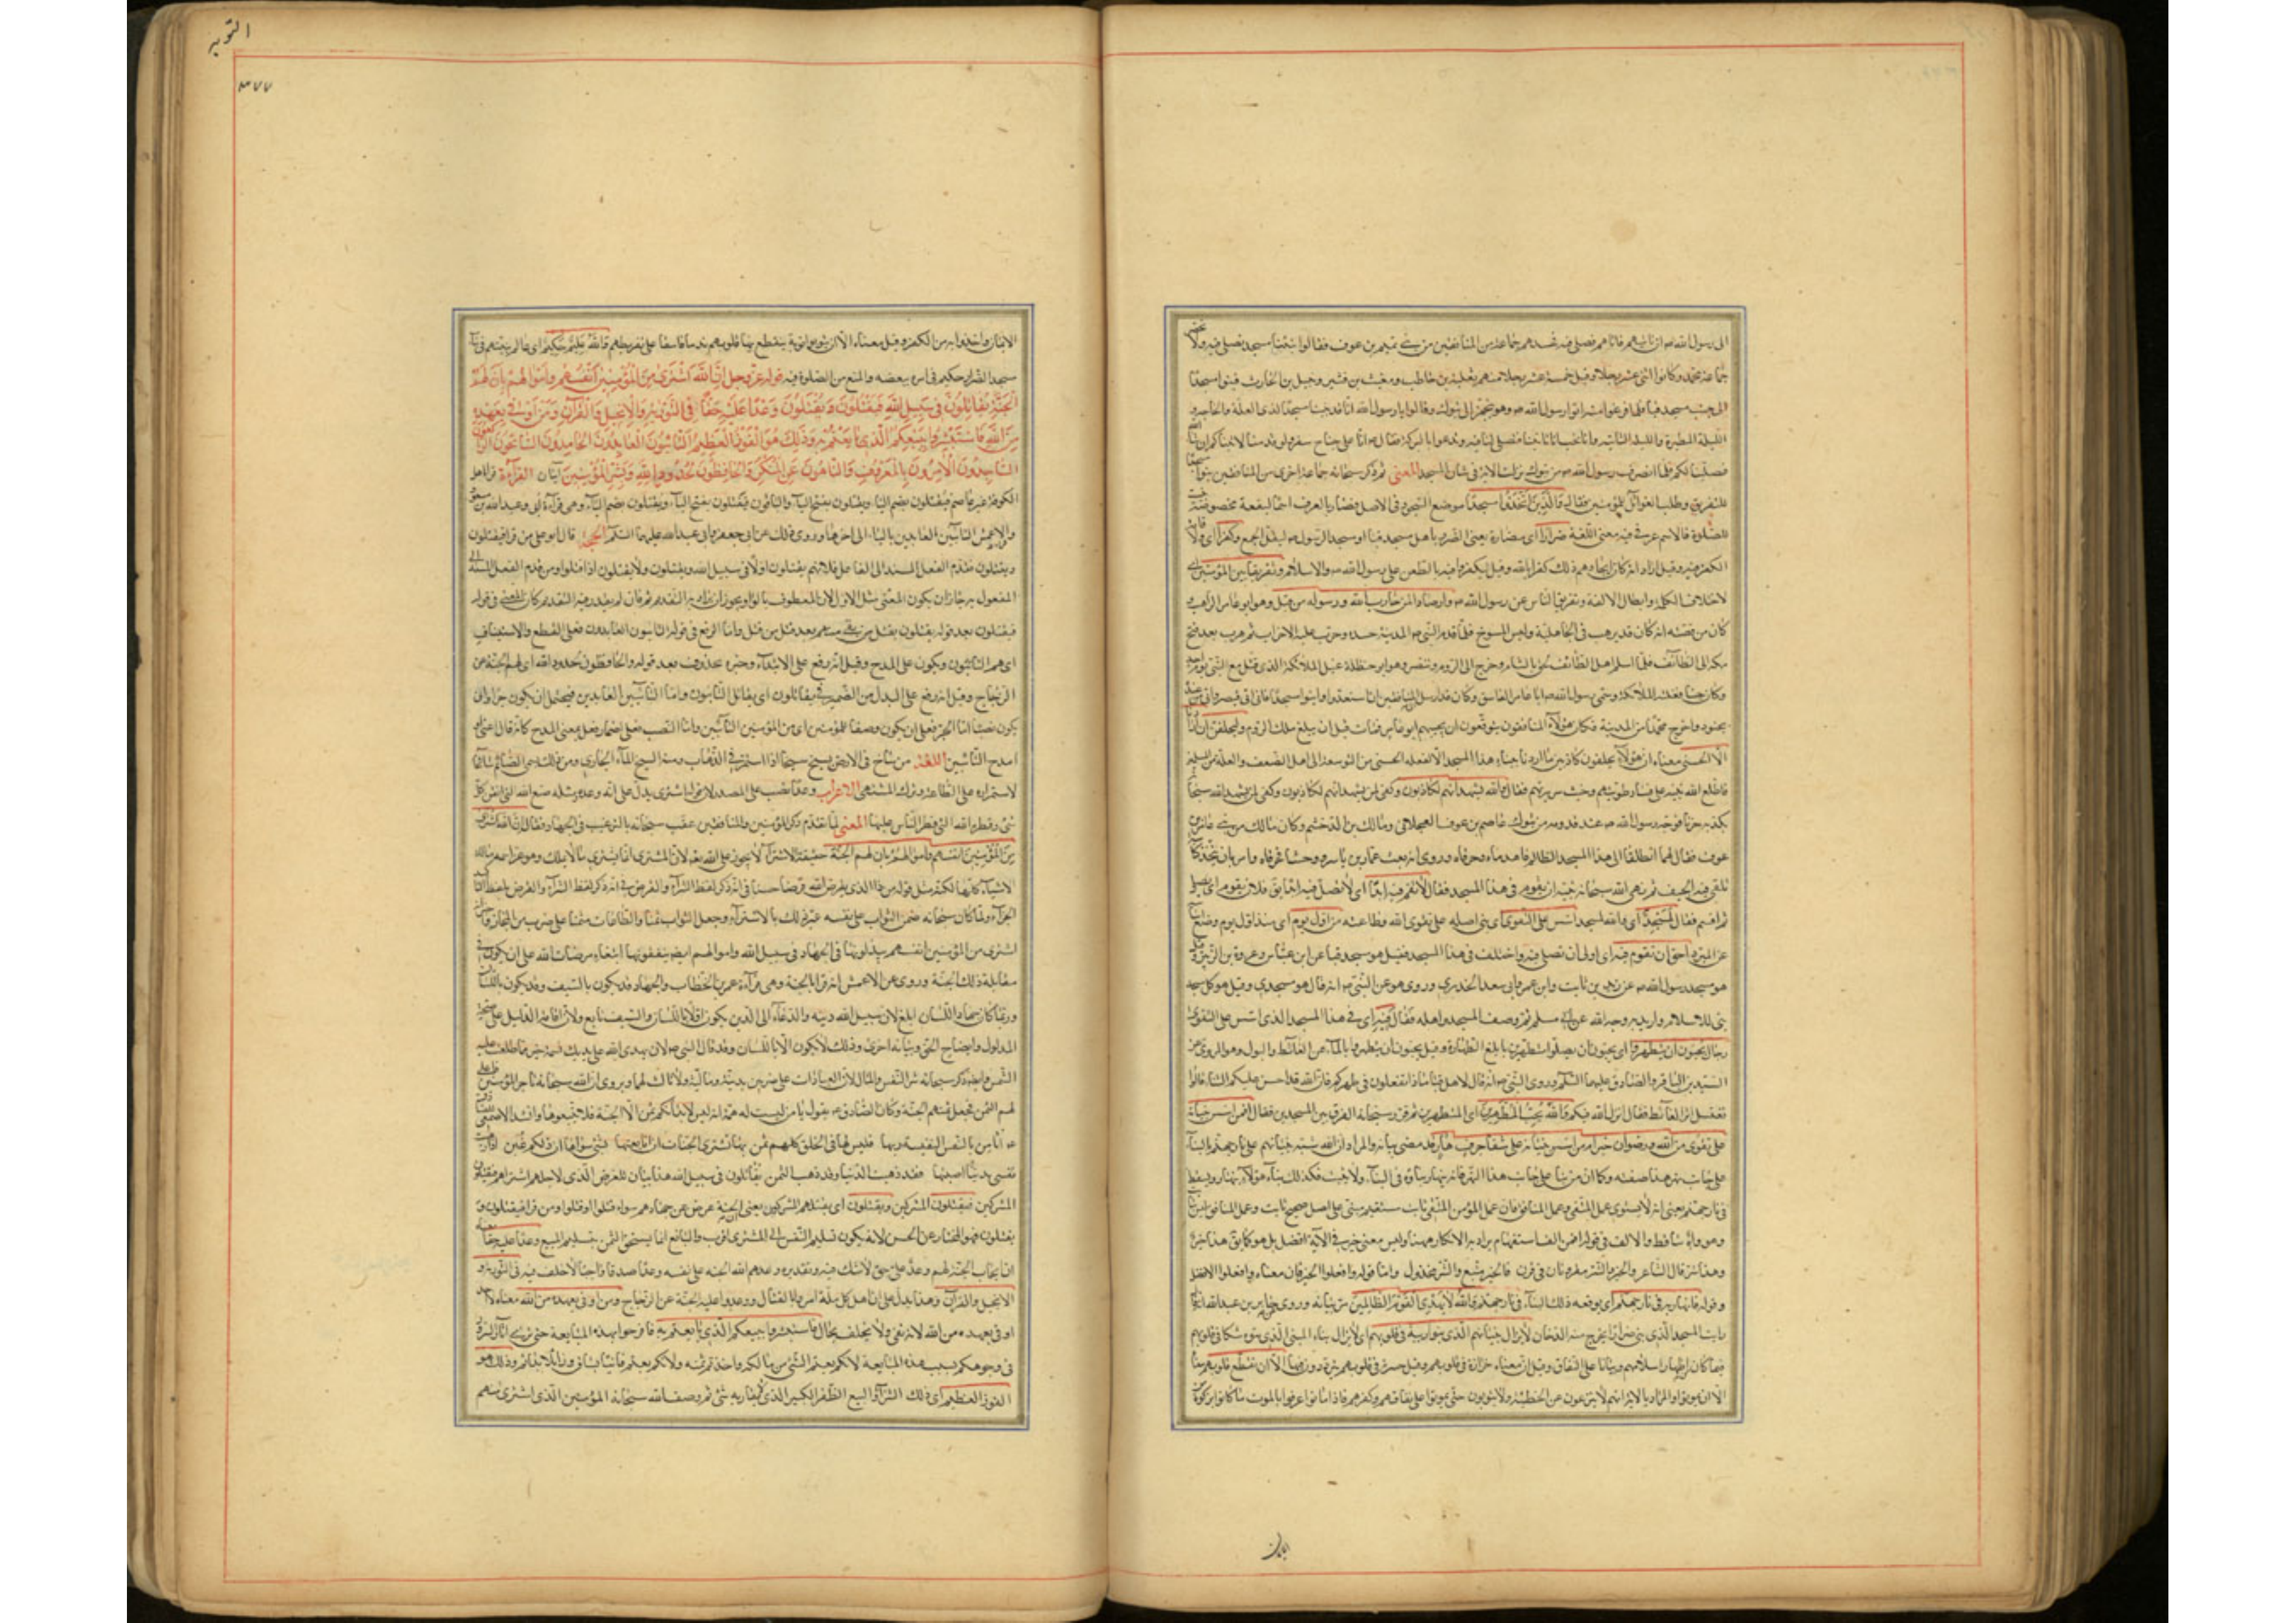 الى رسول الله ص ان ياتيهم فاتاهم فصلى فيه فحسدهم جماعة من المنافقين من بنى غنم بن عوف فقالوا نبنى مسجدا نصلى فيه ولا نحضر
جماعة محمد وكانوا اثنى عشر رجلا وقيل خمسة عشر رجلا منهم ثعلبة بن حاطب ومعتب بن قشير ونبتل بن الحارث فبنوا مسجدا
الى جنب مسجد قبا فلما فرغوا منه اتوا رسول الله ص وهو يتجهز الى تبوك وقالوا يا رسول الله انا قد بنينا مسجدا لذى العلة والحاجة و
الليلة المطيرة والليلة الشاتية وانا نحب ان تاتينا فتصلى لنا فيه وتدعو بالبركة فقال ص انى على جناح سفر ولو قدمنا لاتيناكم ان شا الله
فصلينا لكم فلما انصرف رسول الله ص من تبوك نزلت الاية فى شان المسجد المعنى ثم ذكر سبحانه جماعة اخرى من المنافقين بنوا مسجدا
للتفريق وطلب الغوائل للمؤمنين فقال والذين اتخذوا مسجدا
للصلوة فالاسم عرفى فيه معنى اللغة ضرارا اى مضارة يعنى الضرر باهل مسجد قبا او مسجد الرسول ص ليقل الجمع وكفرا اى ولاقامة
الكفر فيه وقيل اراد انه كان اتخاذهم ذلك كفرا بالله وقيل ليكفروا فيه بالطعن على رسول الله ص والاسلام وتفريقا بين المؤمنين اى
لاختلاف الكلمة وابطال الالفة وتفريق الناس عن رسول الله ص وارصادا لمن حارب الله ورسوله من قبل وهو ابو عامر الراهب و
كان من قصته انه كان قد ترهب فى الجاهلية ولبس المسوح فلما قدم النبى ص المدينة حسده وحزب عليه الاحزاب ثم هرب بعد فتح
مكة الى الطائف فلما اسلم اهل الطائف لحق بالشام وخرج الى الروم وتنصر وهو ابو حنظلة غسيل الملائكة الذى قتل مع النبى يوم احد
وكان جنبا فغسلته الملائكة وسمى رسول الله ص ابا عامر الفاسق وكان قد ارسل الى المنافقين ان استعدوا وابنوا مسجدا فانى اتى قيصر واتى من عنده
بجنود واخرج محمدا من المدينة فكان هؤلاء المنافقون يتوقعون ان يجيئهم ابو عامر فمات قبل ان يبلغ ملك الروم وليحلفن ان اردنا
الا الحسنى معناه ان هؤلاء يحلفون كاذبين ما اردنا ببناء هذا المسجد الا الفعلة الحسنى من التوسعة الى اهل الضعف والعلة من المسلمين
فاطلع الله نبيه على فساد طويتهم وخبث سريرتهم فقال والله يشهد انهم لكاذبون وكفى لمن يشهد الله سبحانه
بكذبه خزيا فوجه رسول الله ص عند قدومه من تبوك عاصم بن عوف العجلانى ومالك بن الدخشم وكان مالك من بنى عمرو بن
عوف فقال لهما انطلقا الى هذا المسجد الظالم اهله فاهدماه وحرقاه وروى انه بعث عمار بن ياسر ووحشيا فحرقاه وامر بان يتخذ كناسة
تلقى فيه الجيف ثم نهى الله سبحانه نبيه ان يقوم فى هذا المسجد فقال لا تقم فيه ابدا اى لا تصل فيه ابدا
ثم اقسم فقال لمسجد اى والله لمسجد اسس على التقوى اى بنى اصله على تقوى الله وطاعته من اول يوم اى منذ اول يوم وضع اساسه
عن المبرد احق ان تقوم فيه اى اولى ان تصلى فيه واختلف فى هذا المسجد فقيل هو مسجد قبا عن ابن عباس وعروة بن الزبير وقيل
هو مسجد رسول الله ص عن زيد بن ثابت وابن عمر وابى سعيد الخدرى وروى هو عن النبى ص انه قال هو مسجدى وقيل هو كل مسجد
بنى للاسلام واريد به وجه الله عن ابى مسلم ثم وصف المسجد واهله فقال فيه اى فى هذا المسجد الذى اسس على التقوى
رجال يحبون ان يتطهروا اى يحبون ان يصلوا متطهرين بابلغ الطهارة وقيل يحبون ان يتطهروا بالماء عن الغائط والبول وهو المروى عن
السيدين الباقر والصادق عليهما السلم وروى عن النبى ص انه قال لاهل قبا ماذا تفعلون فى طهركم فان الله قد احسن عليكم الثناء قالوا
نغسل اثر الغائط فقال انزل الله فيكم والله يحب المطهرين اى المتطهرين ثم قرر سبحانه الفرق بين المسجدين فقال افمن اسس بنيانه
على تقوى من الله ورضوان خير ام من اسس بنيانه على شفا جرف هار قد مضى بيانه والمراد ان الله شبه بنيانهم على نار جهنم بالبناء
على جانب نهر هذا صفته
فى نار جهنم يعنى انه لا يستوى عمل المتقى وعمل المنافق فان عمل المؤمن المتقى ثابت مستقيم مبنى على اصل صحيح ثابت وعمل المنافق ليس بثابت
وهو واه ساقط والالف فى قوله افمن الف استفهام يراد به الانكار ههنا وليس معنى خير فى الآية افضل بل هو كما يق هذا خير
وهذا شر قال الشاعر والخير والشر مقرونان فى قرن فالخير متبع والشر محذول واما قوله وافعلوا الخير فان معناه وافعلوا الافضل
وقوله فانهار به فى نار جهنم اى يوقعه ذلك البناء فى نار جهنم والله لا يهدى القوم الظالمين مر بيانه وروى عن جابر بن عبد الله انه قال
رايت المسجد الذى بنى ضرارا يخرج منه الدخان لا يزال بنيانهم الذى بنوا ريبة فى قلوبهم اى لا يزال بناء المبنى الذى بنوه شكا فى قلوبهم
فيما كان من اظهار اسلامهم وثباتا على النفاق وقيل ان معناه حزازة فى قلوبهم وقيل حسرة فى قلوبهم يترددون فيها الا ان تقطع قلوبهم معناه
الا ان يموتوا والمراد بالاية انهم لا ينزعون عن الخطيئة ولا يتوبون حتى يموتوا على نفاقهم وكفرهم فاذا ماتوا عرفوا بالموت ما كانوا تركوه من
التوبة
٣٧٧
الايمان واخذوا به من الكفر وقيل معناه الا ان يتوبوا توبة يتقطع بها قلوبهم ندما واسفا على تفريطهم والله عليم حكيم اى عالم بنيتهم فى بناء
مسجد الضرار حكيم فى امره بنقضه والمنع من الصلوة فيه قوله عز وجل ان الله اشترى من المؤمنين انفسهم واموالهم بان لهم
الجنة يقاتلون فى سبيل الله فيقتلون ويقتلون وعدا عليه حقا فى التورية والانجيل والقران ومن اوفى بعهده
من الله فاستبشروا ببيعكم الذى بايعتم به وذلك هو الفوز العظيم التائبون العابدون الحامدون السائحون الراكعون
الساجدون الآمرون بالمعروف والناهون عن المنكر والحافظون لحدود الله وبشر المؤمنين آيتان القراءة قرا اهل
الكوفة غير عاصم فيقتلون بضم الياء ويقتلون بفتح الياء والباقون فيقتلون بفتح الياء ويقتلون بضم الياء وهى قراءة ابى وعبد الله بن مسعود
والاعمش التائبين العابدين بالياء الى اخرها وروى ذلك عن ابى جعفر وابى عبد الله عليهما السلم الحجة قال ابو على من قرا فيقتلون
ويقتلون فقدم الفعل المسند الى الفاعل فلانهم يقتلون اولا فى سبيل الله ويقتلون ولا يقتلون اذا قتلوا ومن قدم الفعل المسند الى
المفعول به جاز ان يكون المعنى مثل الاول لان المعطوف بالواو يجوز ان يراد به التقديم فان لم يقدر فيه التقديم كان المعنى فى قوله
فيقتلون بعد قوله يقتلون يقتل من بقى منهم بعد قتل من قتل واما الرفع فى قوله التائبون العابدون فعلى القطع والاستيناف
اى هم التائبون ويكون على المدح وقيل انه رفع على الابتداء وخبره محذوف بعد قوله والحافظون لحدود الله اى لهم الجنة عن
الزجاج وقيل انه رفع على البدل من الضمير فى يقاتلون اى يقاتل التائبون واما التائبين العابدين فيحتمل ان يكون جرا وان
يكون نصبا اما الجر فعلى ان يكون وصفا للمؤمنين اى من المؤمنين التائبين واما النصب فعلى اضمار فعل بمعنى المدح كانه قال اعنى او
امدح التائبين اللغة من ساح فى الارض يسيح سيحا اذا استمر فى الذهاب ومنه السيح الماء الجارى ومن ذلك سمى الصائم سائحا
لاستمراره على الطاعة وترك المشتهى الاعراب وعدا نصب على المصدر لان قوله اشترى يدل على انه وعد ومثله صنع الله الذى اتقن كل
شئ وفطرة الله التى فطر الناس عليها المعنى لما تقدم ذكر المؤمنين والمنافقين عقب سبحانه بالترغيب فى الجهاد فقال ان الله اشترى
من المؤمنين انفسهم واموالهم بان لهم الجنة حقيقة الاشتراء لا يجوز على الله تعه لان المشترى انما يشترى ما لا يملك وهو عز اسمه مالك
الاشياء كلها لكنه مثل قوله من ذا الذى يقرض الله قرضا حسنا فى انه ذكر لفظ الشراء والقرض
الجزاء ولما كان سبحانه ضمن الثواب على نفسه عبر عن ذلك بالاشتراء وجعل الثواب ثمنا والطاعات مثمنا على ضرب من المجاز
اشترى من المؤمنين انفسهم يبذلونها فى الجهاد فى سبيل الله واموالهم ايضا ينفقونها ابتغاء مرضات الله على ان يكون فى
مقابلة ذلك الجنة وروى عن الاعمش انه قرا بالجنة وهى قراءة عمر بن الخطاب والجهاد قد يكون بالسيف وقد يكون باللسان
وربما كان جهاد اللسان ابلغ لان سبيل الله دينه والدعاء الى الدين يكون اولا باللسان والسيف تابع ولان اقامة الدليل على صحة
المدلول وايضاح الحق وبيانه احرى وذلك لا يكون الا باللسان وقد قال النبى ص لان يهدى الله على يديك نسمة خير مما طلعت عليه
الشمس وانما ذكر سبحانه شراء النفس والمال لان العبادات على ضربين بدنية ومالية ولا ثالث لهما ويروى ان الله سبحانه تاجر المؤمنين فاغلى
لهم الثمن فجعل ثمنهم الجنة وكان الصادق ع يقول يا من ليست له همة انه ليس لابدانكم ثمن الا الجنة فلا تبيعوها وانشد الاصمعى للصادق
ع اثامن بالنفس النفيسة ربها فليس لها فى الخلق كلهم ثمن بها نشترى الجنات ان انا بعتها بشئ سواها ان ذلكم غبن اذا ذهبت
نفسى بدنيا اصبتها فقد ذهبت الدنيا وقد ذهب الثمن يقاتلون فى سبيل الله هذا بيان للغرض الذى لاجله اشتراهم فيقتلون
المشركين ويقتلون اى يقتلهم المشركون يعنى ان الجنة عوض عن جهادهم سواء قتلوا او قتلوا ومن قرا فيقتلون و
يقتلون فهو المختار عن الحسن لانه يكون تسليم النفس الى المشترى اقرب والبايع انما يستحق الثمن بتسليم المبيع وعدا عليه حقا معناه
ان ايجاب الجنة لهم وعد على الله حق لا شك فيه وتقديره وعدهم الله الجنة على نفسه وعدا صدقا واجبا لا خلف فيه فى التورية و
الانجيل والقرآن وهذا يدل على ان اهل كل ملة امروا بالقتال ووعدوا عليه الجنة عن الزجاج ومن اوفى بعهده من الله معناه لا احد
اوفى بعهده من الله لانه يفى ولا يخلف بحال فاستبشروا ببيعكم الذى بايعتم به فافرحوا بهذه المبايعة حتى ترى اثار السرور
فى وجوهكم بسبب هذه المبايعة لانكم بعتم الشئ من مالكه واخذتم ثمنه ولانكم بعتم فانيا بباق وزايلا بدايم وذلك هو
الفوز العظيم اى ذلك الشراء والبيع الظفر الكبير الذى لا يقاربه شئ ثم وصف الله سبحانه المؤمنين الذى اشترى منهم